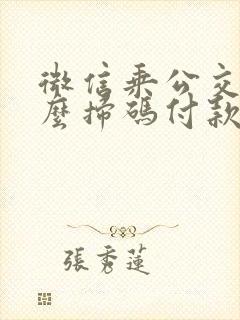 微信乘公交
麼掃碼付款
張秀蓮